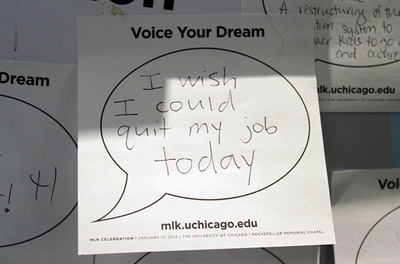 Voice Your Dream
I wish
I could
quit my job
today
mlk.uchicago.edu
MLK CELEBRATION | JANUARY 12, 2012 | THE UNIVERSITY OF CHICAGO | ROCKEFELLER MEMORIAL CHAPEL
A restructuring of the
system to
kids to go
and achie
mlk.uchicago.edu
THE UNIVERSITY OF CHICAGO | ROCKEF
Dream
edu
Voi